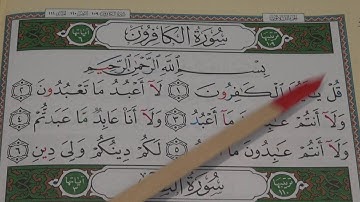 سُورَةُ الكَافِرُونَ
بِسْمِ اللَّهِ الرَّحْمَٰنِ الرَّحِيمِ
قُلْ يَا الْكَافِرُونَ ١ لَا أَعْبُدُ مَا تَعْبُدُونَ ٢
وَلَا أَنتُمْ عَابِدُونَ مَا أَعْبُدُ ٣ وَلَا أَنَا عَابِدٌ مَّا عَبَدتُّمْ ٤
وَلَا أَنتُمْ عَابِدُونَ مَا ٥ لَكُمْ دِينُكُمْ وَلِيَ دِينِ ٦
سُورَةُ